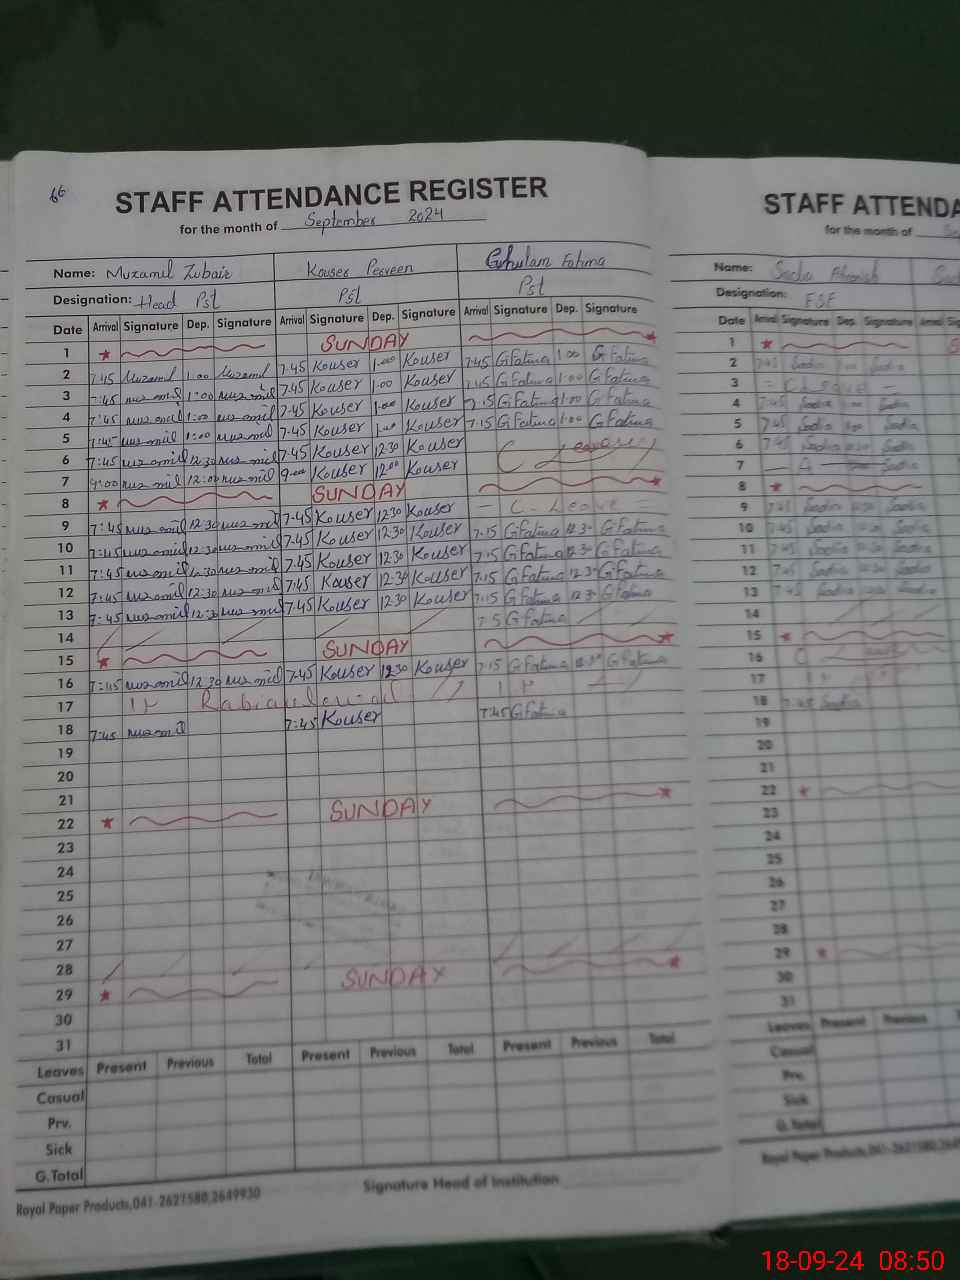 66
STAFF ATTENDANCE REGISTER
for the month of September 2024
Name: Muzamil Zubair Kouser Perveen Ghulam Fatima
Designation: Head Pst Pst Pst
Date Arrival Signature Dep. Signature Arrival Signature Dep. Signature Arrival Signature Dep. Signature
1 SUNDAY
2 7:45 Muzamil 1:00 Muzamil 7.45 Kouser 1.00 Kouser 7.45 GFatima 1.00 GFatima
3 7:45 muzamil 1:00 muzamil 7.45 Kouser 1.00 Kouser 7.45 GFatima 1.00 GFatima
4 7:45 muzamil 1:00 muzamil 7.45 Kouser 1.00 Kouser 7.15 GFatima 1.00 GFatima
5 7:45 muzamil 1:00 muzamil 7.45 Kouser 1.00 Kouser 7.15 GFatima 1.00 GFatima
6 7:45 muzamil 12:30 muzamil 7.45 Kouser 12:30 Kouser C Leave
7 9:00 muzamil 12:00 muzamil 9.00 Kouser 12.00 Kouser
8 SUNDAY
9 7:45 muzamil 12:30 muzamil 7.45 Kouser 12.30 Kouser C. Leave
10 7:45 muzamil 12:30 muzamil 7.45 Kouser 12.30 Kouser 7.15 GFatima 12.30 GFatima
11 7:45 muzamil 12:30 muzamil 7.45 Kouser 12.30 Kouser 7.15 GFatima 12.30 GFatima
12 7:45 muzamil 12:30 muzamil 7.45 Kouser 12.30 Kouser 7.15 GFatima 12.30 GFatima
13 7:45 muzamil 12:30 muzamil 7.45 Kouser 12.30 Kouser 7.15 GFatima 12.30 GFatima
14 GFatima
15 SUNDAY
16 7:45 muzamil 12:30 muzamil 7.45 Kouser 12.30 Kouser 7.15 GFatima 12.30 GFatima
17
18 7:45 muzamil 7:45 Kouser 7.45 GFatima
19
20
21
22 SUNDAY
23
24
25
26
27
28
29 SUNDAY
30
31
Leaves Present Previous Total Present Previous Total Present Previous Total
Casual
Prv.
Sick
G.Total
Royal Paper Products,041-2621580,2649930 Signature Head of Institution
STAFF ATTENDA
for the month of
Name: Sadia
Designation: FSF
Date Arrival Signature Dep. Signature Arrival
1
2 7.45 Sadia Sadia
3
4 7.45 Sadia Sadia
5 7.45 Sadia Sadia
6 7.45 Sadia Sadia
7
8
9 Sadia Sadia
10 7.45 Sadia Sadia
11 7.45 Sadia Sadia
12 7.45 Sadia Sadia
13 7.45 Sadia Sadia
14
15
16
17
18 7.45 Sadia
19
20
21
22
23
24
25
26
27
28
29
30
31
Leaves Present Previous
Casual
Prv.
Sick
G.Total
Royal Paper Products,041-2621580,2649
18-09-24 08:50